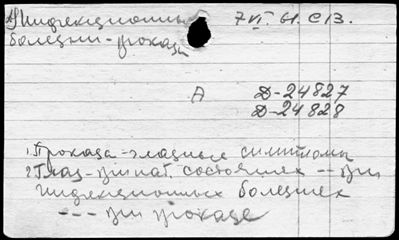 Инфекционные 7 VI. 61. С 13.
болезни-проказа
А Д-24827
Д-24828
1. Проказа-глазные симптомы
2. Глаз-при пат. состояниях -- при
инфекционных болезнях
--- при проказе